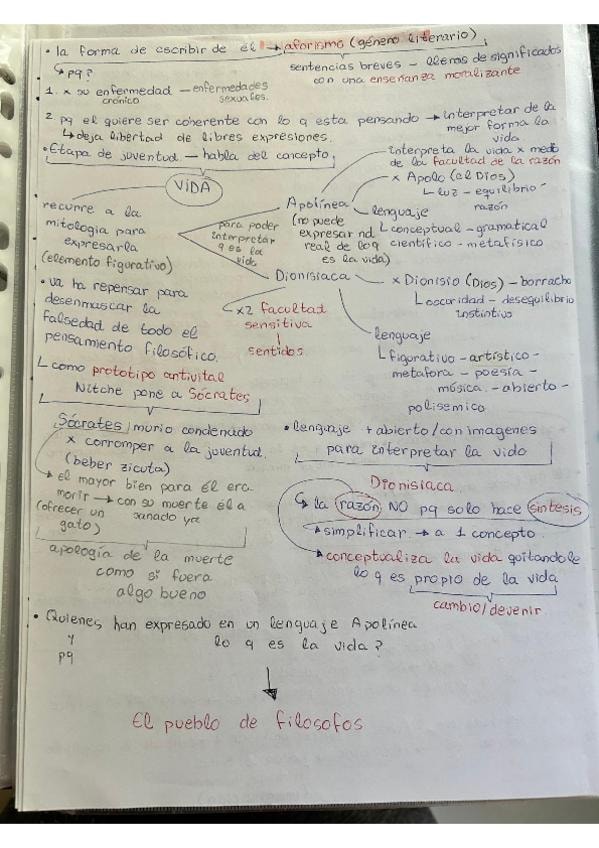 • la forma de escribir de él → aforismo (género literario)
↳ pq?
sentencias breves – llenas de significados
con una enseñanza moralizante
1. x su enfermedad — enfermedades
crónico
sexuales.
2 pq el quiere ser coherente con lo q esta pensando → interpretar de la
mejor forma la
vida.
↳ deja libertad de libres expresiones.
• Etapa de juventud — habla del concepto
VIDA
interpreta la vida x medio
de la facultad de la razón
x Apolo (el Dios)
└ luz – equilibrio –
razón
recurre a la
mitología para
expresarla
(elemento figurativo)
para poder
interpretar
q es la
vida
Apolínea
(no puede
expresar nd
real de lo q
es la vida)
lenguaje
└ conceptual – gramatical
científico – metafísico
Dionisiaca
x Dionisio (Dios) – borracho
└ oscuridad – desequilibrio
instintivo
• va ha repensar para
desenmascar la
falsedad de todo el
pensamiento filosófico.
x2 facultad
sensitiva
↓
sentidos
lenguaje
└ figurativo – artístico –
metafora – poesía –
música. – abierto –
polisemico
└ como prototipo antivital
Nitche pone a Sócrates
Sócrates/murio condenado
x corromper a la juventud.
(beber zicuta)
→ el mayor bien para él era
morir → con su muerte él a
(ofrecer un
gato)
sanado ya
apología de la muerte
como si fuera
algo bueno
• lenguaje + abierto/con imagenes
para interpretar la vida
Dionisiaca
↳ la razón NO pq solo hace síntesis
→ simplificar → a 1 concepto
→ conceptualiza la vida quitandole
lo q es propio de la vida
cambio/devenir
• Quienes han expresado en un lenguaje Apolínea
y
pq
lo q es la vida?
↓
El pueblo de filosofos